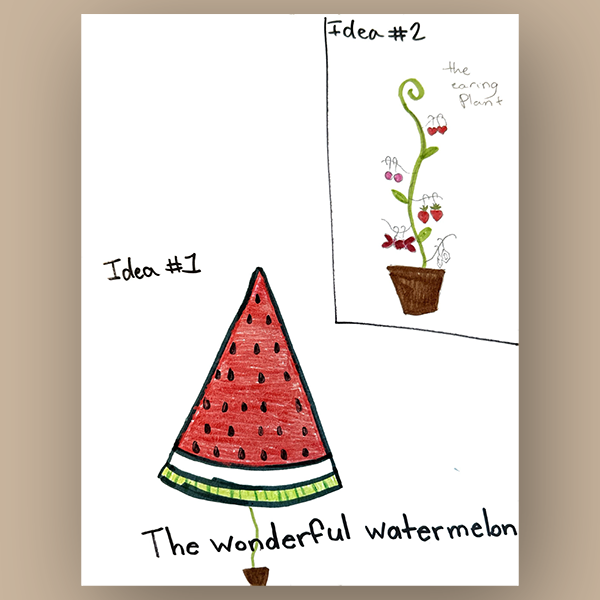 Idea #2
the
earing
Plant
Idea #1
The wonderful watermelon